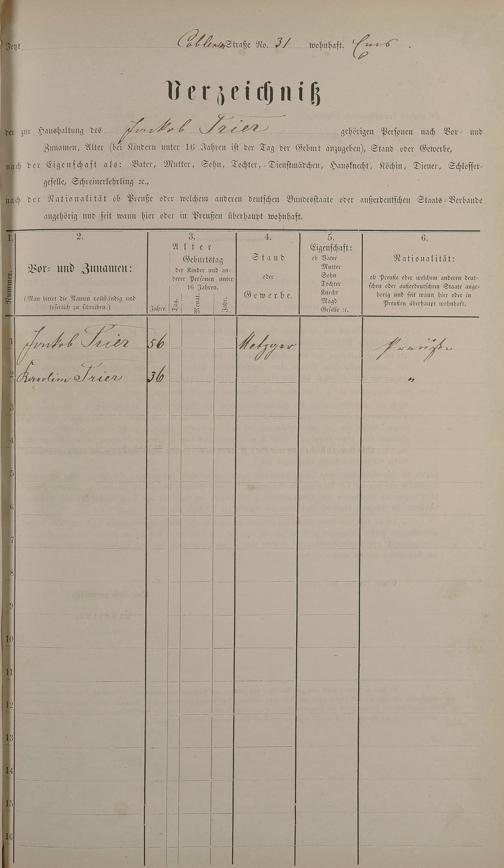 Jetzt Coblenz Straße No. 31 wohnhaft. Ems.
Verzeichniß
der zur Haushaltung des Jonkob Trier gehörigen Personen nach Vor- und
Zunamen, Alter (bei Kindern unter 16 Jahren ist der Tag der Geburt anzugeben), Stand oder Gewerbe,
nach der Eigenschaft als: Vater, Mutter, Sohn, Tochter, Dienstmädchen, Hausknecht, Köchin, Diener, Schlosser-
geselle, Schreinerlehrling ꝛc.,
nach der Nationalität ob Preuße oder welchem anderen deutschen Bundesstaate oder außerdeutschen Staats-Verbande
angehörig und seit wann hier oder in Preußen überhaupt wohnhaft.
1.
Nummer.
2.
Vor- und Zunamen:
(Man bittet die Namen vollständig und
leserlich zu schreiben.)
3.
Alter
Geburtstag
der Kinder und an-
derer Personen unter
16 Jahren.
Jahre
Tag.
Monat.
Jahr.
4.
Stand
oder
Gewerbe.
5.
Eigenschaft:
ob Vater
Mutter
Sohn
Tochter
Knecht
Magd
Geselle ꝛc.
6.
Nationalität:
ob Preuße oder welchem anderen deut-
schen oder außerdeutschen Staate ange-
hörig und seit wann hier oder in
Preußen überhaupt wohnhaft.
1 Jonkob Trier 56 Metzger Preuße
2 Karolin Trier 36 "
3
4
5
6
7
8
9
10
11
12
13
14
15
16